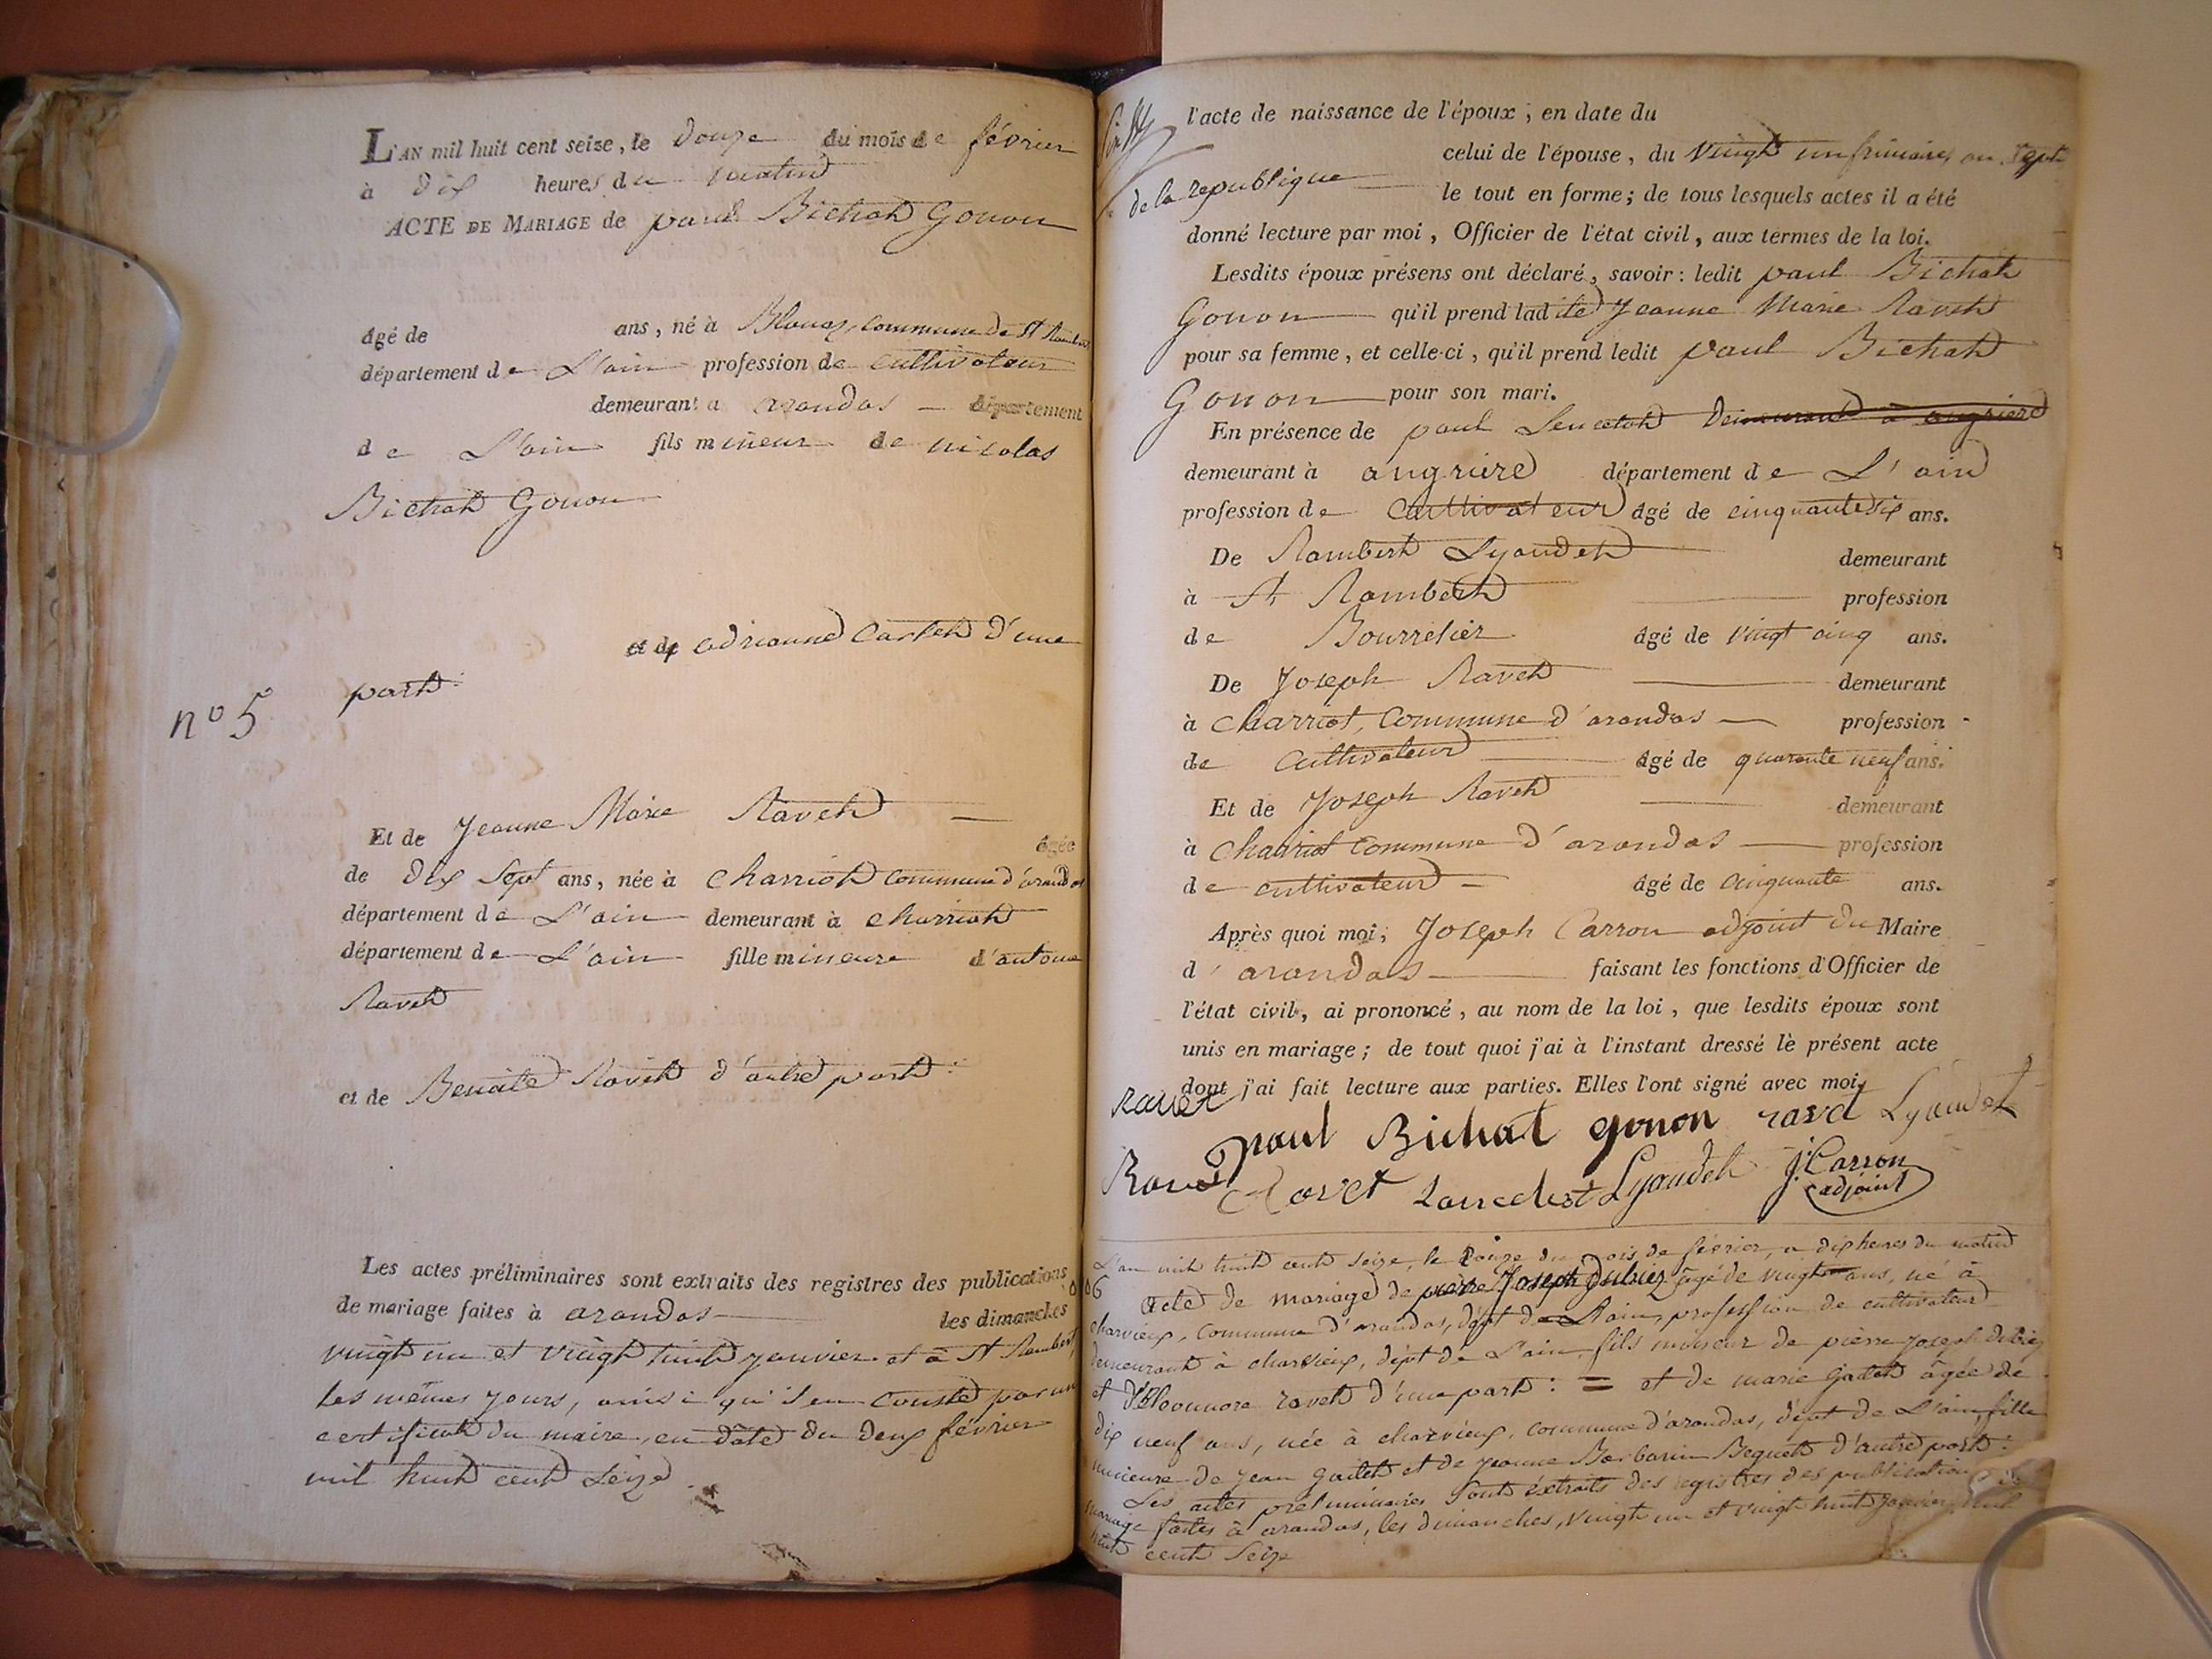 L'AN mil huit cent seize, le douze du mois de février
à dix heures du matin
ACTE DE MARIAGE de paul Bichat Gonon
âgé de ans, né à Blanaz, commune de St Rambert
département de L'ain profession de cultivateur
demeurant a arandas — département
de L'ain fils mineur de nicolas
Bichat Gonon
et de adrianne Carlet d'une
part :
n° 5
Et de Jeanne Marie Ravet — âgée
de dix sept ans, née à charriot commune d'arandas
département de L'ain demeurant à charriot
département de L'ain fille mineure d'antoine
Ravet
et de Benoite Ravet d'autre part :
Les actes préliminaires sont extraits des registres des publications
de mariage faites à arandas les dimanches
vingt un et vingt huit janvier et à St Rambert,
les mêmes jours, ainsi qu'il en conste par un
certificat du maire, en date du deux février
mil huit cent seize.
l'acte de naissance de l'époux, en date du
celui de l'épouse, du vingt un frimaire an sept
de la republique le tout en forme; de tous lesquels actes il a été
donné lecture par moi, Officier de l'état civil, aux termes de la loi.
Lesdits époux présens ont déclaré, savoir: ledit paul Bichat
Gonon qu'il prend ladite Jeanne Marie Ravet
pour sa femme, et celle-ci, qu'il prend ledit paul Bichat
Gonon pour son mari.
En présence de paul Lencetot demeurant à angriere
demeurant à angriere département de L'ain
profession de Cultivateur âgé de cinquante six ans.
De Rambert Lyaudet demeurant
à St Rambert profession
de Bourrelier âgé de vingt cinq ans.
De Joseph Ravet demeurant
à Charriot, Commune d'arandas — profession
de Cultivateur âgé de quarante neuf ans.
Et de Joseph Ravet demeurant
à Charriot Commune d'arandas profession
de cultivateur âgé de cinquante ans.
Après quoi moi, Joseph Carron adjoint du Maire
d'arandas faisant les fonctions d'Officier de
l'état civil, ai prononcé, au nom de la loi, que lesdits époux sont
unis en mariage; de tout quoi j'ai à l'instant dressé le présent acte
dont j'ai fait lecture aux parties. Elles l'ont signé avec moi,
Ravet
paul Bichat gonon ravet Lyaudet
Ravet Ravet Lyaudet J. Carron
adjoint
L'an mil huit cent seize, le douze du mois de février, a dix heures du matin
acte de mariage de pierre Joseph Dubiez âgé de vingt ans, né à
charvieux, commune d'arandas, dépt de L'ain, profession de cultivateur
demeurant à charvieux, dépt de L'ain, fils mineur de pierre joseph dubiez
et d'Eleonnore ravet d'une part : = et de marie Gadet âgée de
dix neuf ans, née à charvieux, commune d'arandas, dépt de L'ain, fille
mineure de jean gadet et de jeanne Barbarin Bequet d'autre part :
Les actes préliminaires sont éxtraits des registres des publications de
mariage faites à arandas, les dimanches, vingt un et vingt huit janvier mil
huit cent seize